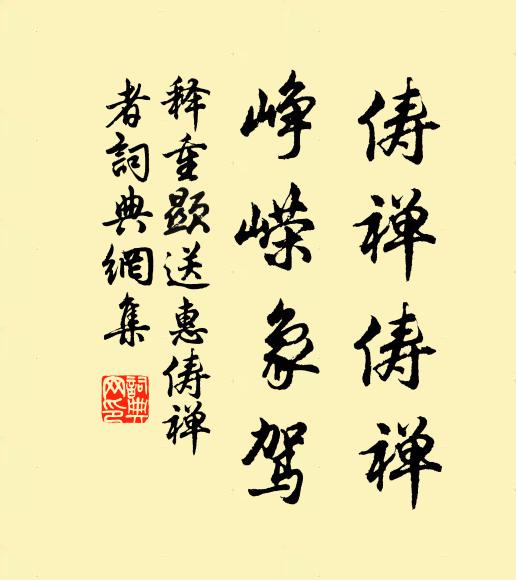 俦禅俦禅
峥嵘象驾
释重显送惠俦禅
者詞典網集
詞典
网印